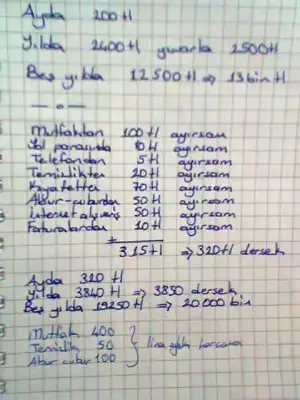 Ayda 200tl
Yılda 2400tl yuvarla 2500tl
Beş yılda 12500tl => 13 bin tl
— o —
Mutfaktan 100tl ayırsam
Yol parasında 10tl ayırsam
Telefondan 5tl ayırsam
Temizlikten 20tl ayırsam
Kıyafetten 70tl ayırsam
Abur-cuburdan 50tl ayırsam
internet alışveriş 50tl ayırsam
Faturalardan 10tl ayırsam
+
315tl => 320tl dersek
Ayda 320 tl
yılda 3840tl => 3850 dersek
Beş yılda 19250tl => 20 000 bin
Mutfak 400
Temizlik 50
Abur cubur 100